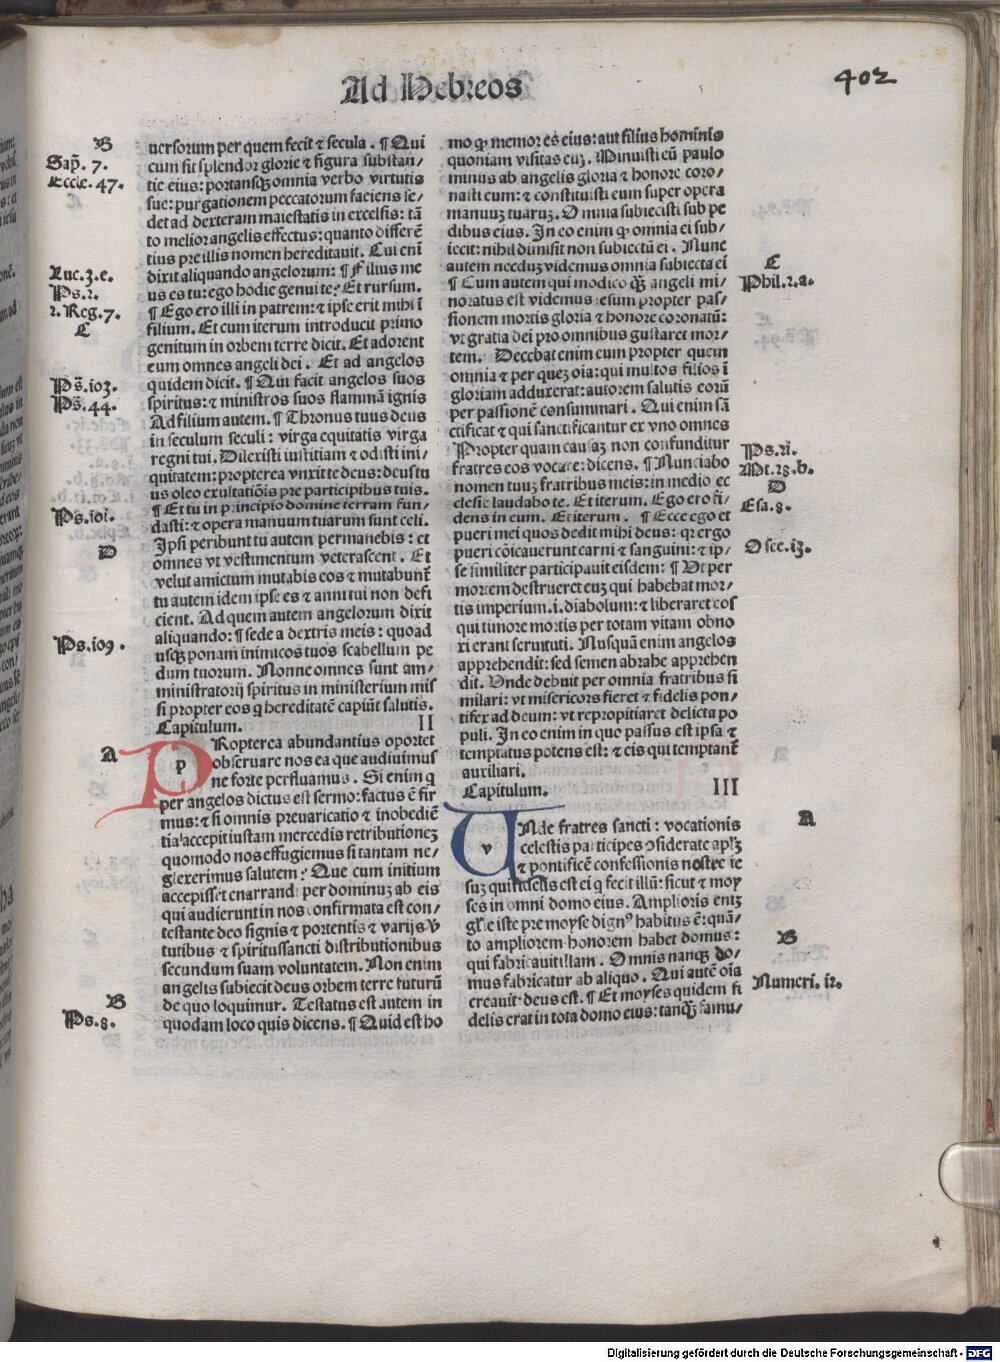 Ad Hebreos
402
B
Sap̄. 7.
Eccle. 47.
Luc.3.e.
Ps.2.
2.Reg.7.
C
Ps̄.103.
Ps̄.44.
Ps.101.
D
Ps.109.
A
B
Ps.8.
uersorum per quem fecit ⁊ secula. ¶ Qui
cum sit splendor glorie ⁊ figura substan/
tie eius: portansqꝫ omnia verbo virtutis
sue: purgationem peccatorum faciens se/
det ad dexteram maiestatis in excelsis: tā
to melior angelis effectus: quanto differē
tius pre illis nomen hereditauit. Cui eni
dixit aliquando angelorum: ¶ Filius me
us es tu: ego hodie genui te? Et rursum.
¶ Ego ero illi in patrem: ⁊ ipse erit mihi ī
filium. Et cum iterum introducit primo
genitum in orbem terre dicit. Et adorent
eum omnes angeli dei. Et ad angelos
quidem dicit. ¶ Qui facit angelos suos
spiritus: ⁊ ministros suos flammā ignis
Ad filium autem. ¶ Thronus tuus deus
in seculum seculi: virga equitatis virga
regni tui. Dilexisti iustitiam ⁊ odisti ini/
quitatem: propterea vnxit te deus: deus tu
us oleo exultatiōis pre participibus tuis.
¶ Et tu in principio domine terram fun/
dasti: ⁊ opera manuum tuarum sunt celi.
Ipsi peribunt tu autem permanebis: et
omnes vt vestimentum veterascent. Et
velut amictum mutabis eos ⁊ mutabunt̄
tu autem idem ipse es ⁊ anni tui non defi
cient. Ad quem autem angelorum dixit
aliquando: ¶ sede a dextris meis: quoad
usqꝫ ponam inimicos tuos scabellum pe
dum tuorum. Nonne omnes sunt am/
ministratorij spiritus in ministerium mis
si propter eos q hereditatē capiūt salutis.
Capitulum. II
p
PRopterea abundantius oportet
obseruare nos ea que audiuimus
ne forte perfluamus. Si enim q
per angelos dictus est sermo: factus ē fir
mus: ⁊ si omnis preuaricatio ⁊ inobediē
tia accepit iustam mercedis retributionez
quomodo nos effugiemus si tantam ne/
glexerimus salutem? Que cum initium
accepisset enarrandi per dominuꝫ ab eis
qui audierunt in nos confirmata est con/
testante deo signis ⁊ portentis ⁊ varijs v̄
tutibus ⁊ spiritussancti distributionibus
secundum suam voluntatem. Non enim
angelis subiecit deus orbem terre futurū
de quo loquimur. Testatus est autem in
quodam loco quis dicens. ¶ Quid est ho
mo qꝫ memor es eius: aut filius hominis
quoniam visitas euꝫ. Minuisti eū paulo
minus ab angelis gloria ⁊ honore coro/
nasti eum: ⁊ constituisti eum super opera
manuuꝫ tuaruꝫ. Omnia subiecisti sub pe
dibus eius. In eo enim qꝫ omnia ei sub/
iecit: nihil dimisit non subiectū ei. Nunc
autem necduꝫ videmus omnia subiecta ei
¶ Cum autem qui modico qꝫ̄ angeli mi/
noratus est videmus iesum propter pas/
sionem mortis gloria ⁊ honore coronatū:
vt gratia dei pro omnibus gustaret mor/
tem. Decebat enim eum propter quem
omnia ⁊ per queꝫ oīa: qui multos filios ī
gloriam adduxerat: autorem salutis eorū
per passionē consummari. Qui enim sā
ctificat ⁊ qui sanctificantur ex vno omnes
Propter quam causaꝫ non confunditur
fratres eos vocare: dicens. ¶ Nunciabo
nomen tuuꝫ fratribus meis: in medio ec
clesie laudabo te. Et iterum. Ego ero fi/
dens in eum. Et iterum. ¶ Ecce ego et
pueri mei quos dedit mihi deus: qꝛ ergo
pueri cōicauerunt carni ⁊ sanguini: ⁊ ip/
se similiter participauit eisdem: ¶ Vt per
mortem destrueret euꝫ qui habebat mor/
tis imperium.i.diabolum: ⁊ liberaret eos
qui timore mortis per totam vitam obno
xi erant seruituti. Nusquā enim angelos
apprehendit: sed semen abrahe apprehen
dit. Unde debuit per omnia fratribus si
milari: vt misericors fieret ⁊ fidelis pon/
tifex ad deum: vt repropitiaret delicta po
puli. In eo enim in quo passus est ipse ⁊
temptatus potens est: ⁊ eis qui temptant̄
auxiliari.
Capitulum. III
v
UNde fratres sancti: vocationis
celestis participes ꝯsiderate aplꝫ
⁊ pontificē confessionis nostre ie
suꝫ qui fidelis est ei q fecit illū: sicut ⁊ moy
ses in omni domo eius. Amplioris eniꝫ
gl̄e iste pre moyse dignꝰ habitus ē: quā/
to ampliorem honorem habet domus:
qui fabricauit illam. Omnis nanqꝫ do/
mus fabricatur ab aliquo. Qui autē oīa
creauit: deus est. ¶ Et moyses quidem fi
delis erat in tota domo eius: tanqꝫ̄ famu/
C
Phil.2.a.
Ps.21.
Mt.28.b.
D
Esa.8.
Osee.13.
A
B
Numeri.12.
Digitalisierung gefördert durch die Deutsche Forschungsgemeinschaft - DFG